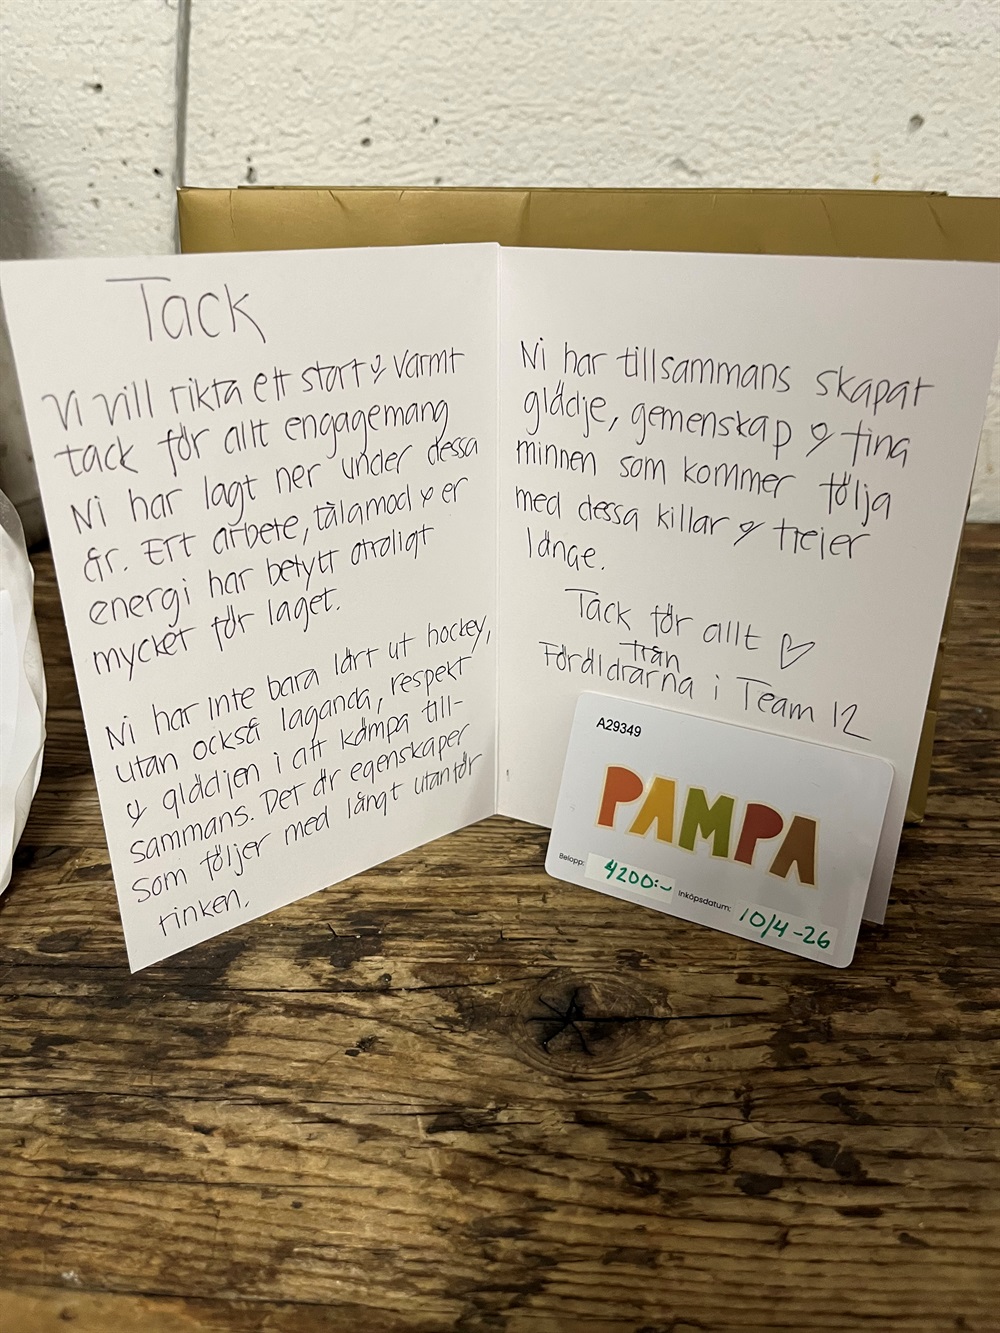 Tack
Vi vill rikta ett stort & varmt
tack för allt engagemang
Ni har lagt ner under dessa
år. Ert arbete, tålamod & er
energi har betytt otroligt
mycket för laget.
Ni har inte bara lärt ut hockey,
utan också laganda, respekt
& glädjen i att kämpa till-
sammans. Det är egenskaper
som följer med långt utanför
rinken.
Ni har tillsammans skapat
glädje, gemenskap & fina
minnen som kommer följa
med dessa killar & tjejer
länge.
Tack för allt ♡
från
Föräldrarna i Team 12
A29349
PAMPA
Belopp: 4200:-
Inköpsdatum: 10/4-26